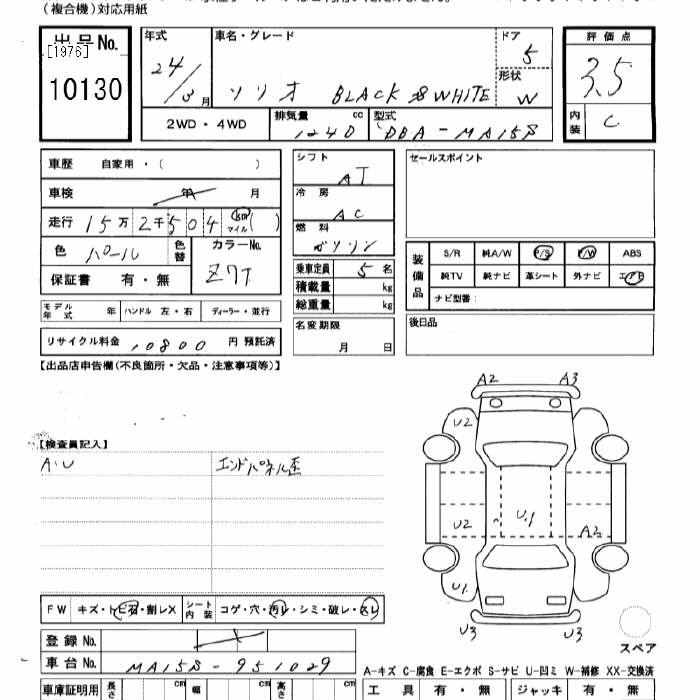 (複合機)対応用紙
出品No.
[1976]
10130
年式 車名・グレード ドア 5 評価点
24/3月 ソリオ BLACK&WHITE 形状 W 3.5
2WD・4WD 排気量 1240 cc 型式 DBA-MA15S 内装 C
車歴 自家用・( )
車検 年 月
走行 15万2千504 km マイル ( )
色 パール 色替 カラーNo. Z7T
保証書 有・無
モデル年式 年 ハンドル 左・右 ディーラー・並行
リサイクル料金 10800 円 預託済
シフト AT
冷房 AC
燃料 ガソリン
乗車定員 5 名
積載量 kg
総重量 kg
名変期限 月 日
セールスポイント
装備品 S/R 純A/W P/S P/W ABS
純TV 純ナビ 革シート 外ナビ エアB
ナビ型番:
後日品
【出品店申告欄(不良箇所・欠品・注意事項等)】
A2 A3
U2
【検査員記入】
A・U エンドパネル歪
U2 U1 A2
U1
U3 U3
FW キズ・トビ石・割レX シート内装 コゲ・穴・汚レ・シミ・破レ・スレ
スペア
登録No.
車台No. MA15S-951029
A-キズ C-腐食 E-エクボ S-サビ U-凹ミ W-補修 XX-交換済
車庫証明用 長さ cm 幅 cm 高さ cm
工具 有・無 ジャッキ 有・無